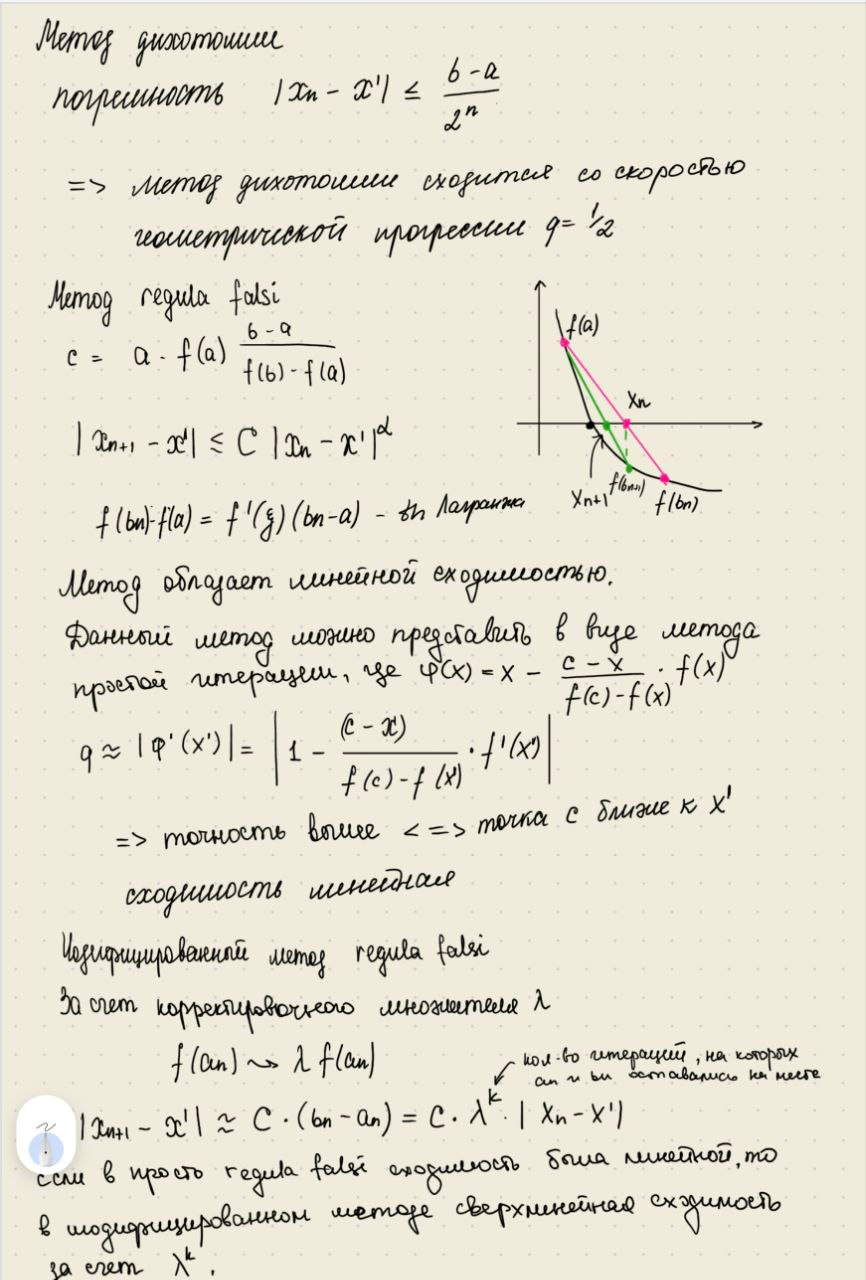 Метод дихотомии
погрешность |xn - x'| ≤ (b - a) / 2^n
=> метод дихотомии сходится со скоростью
геометрической прогрессии q = 1/2
Метод regula falsi
c = a - f(a) (b - a) / (f(b) - f(a))
|xn+1 - x'| ≤ C |xn - x'|^α
f(bn) - f(a) = f'(ξ)(bn - a) - th Лагранжа
f(a)
xn
xn+1
f(bn+1)
f(bn)
Метод обладает линейной сходимостью.
Данный метод можно представить в виде метода
простой итерации, где φ(x) = x - (c - x) / (f(c) - f(x)) · f(x)
q ≈ |φ'(x')| = |1 - (c - x') / (f(c) - f(x')) · f'(x')|
=> точность выше <=> точка c ближе к x'
сходимость линейная
Модифицированный метод regula falsi
За счет корректировочного множителя λ
f(an) ⇝ λ f(an)
кол-во итераций, на которых
an и bn оставались на месте
|xn+1 - x'| ≈ C · (bn - an) = C · λ^k · |xn - x'|
если в просто regula falsi сходимость была линейной, то
в модифицированном методе сверхлинейная сходимость
за счет λ^k.